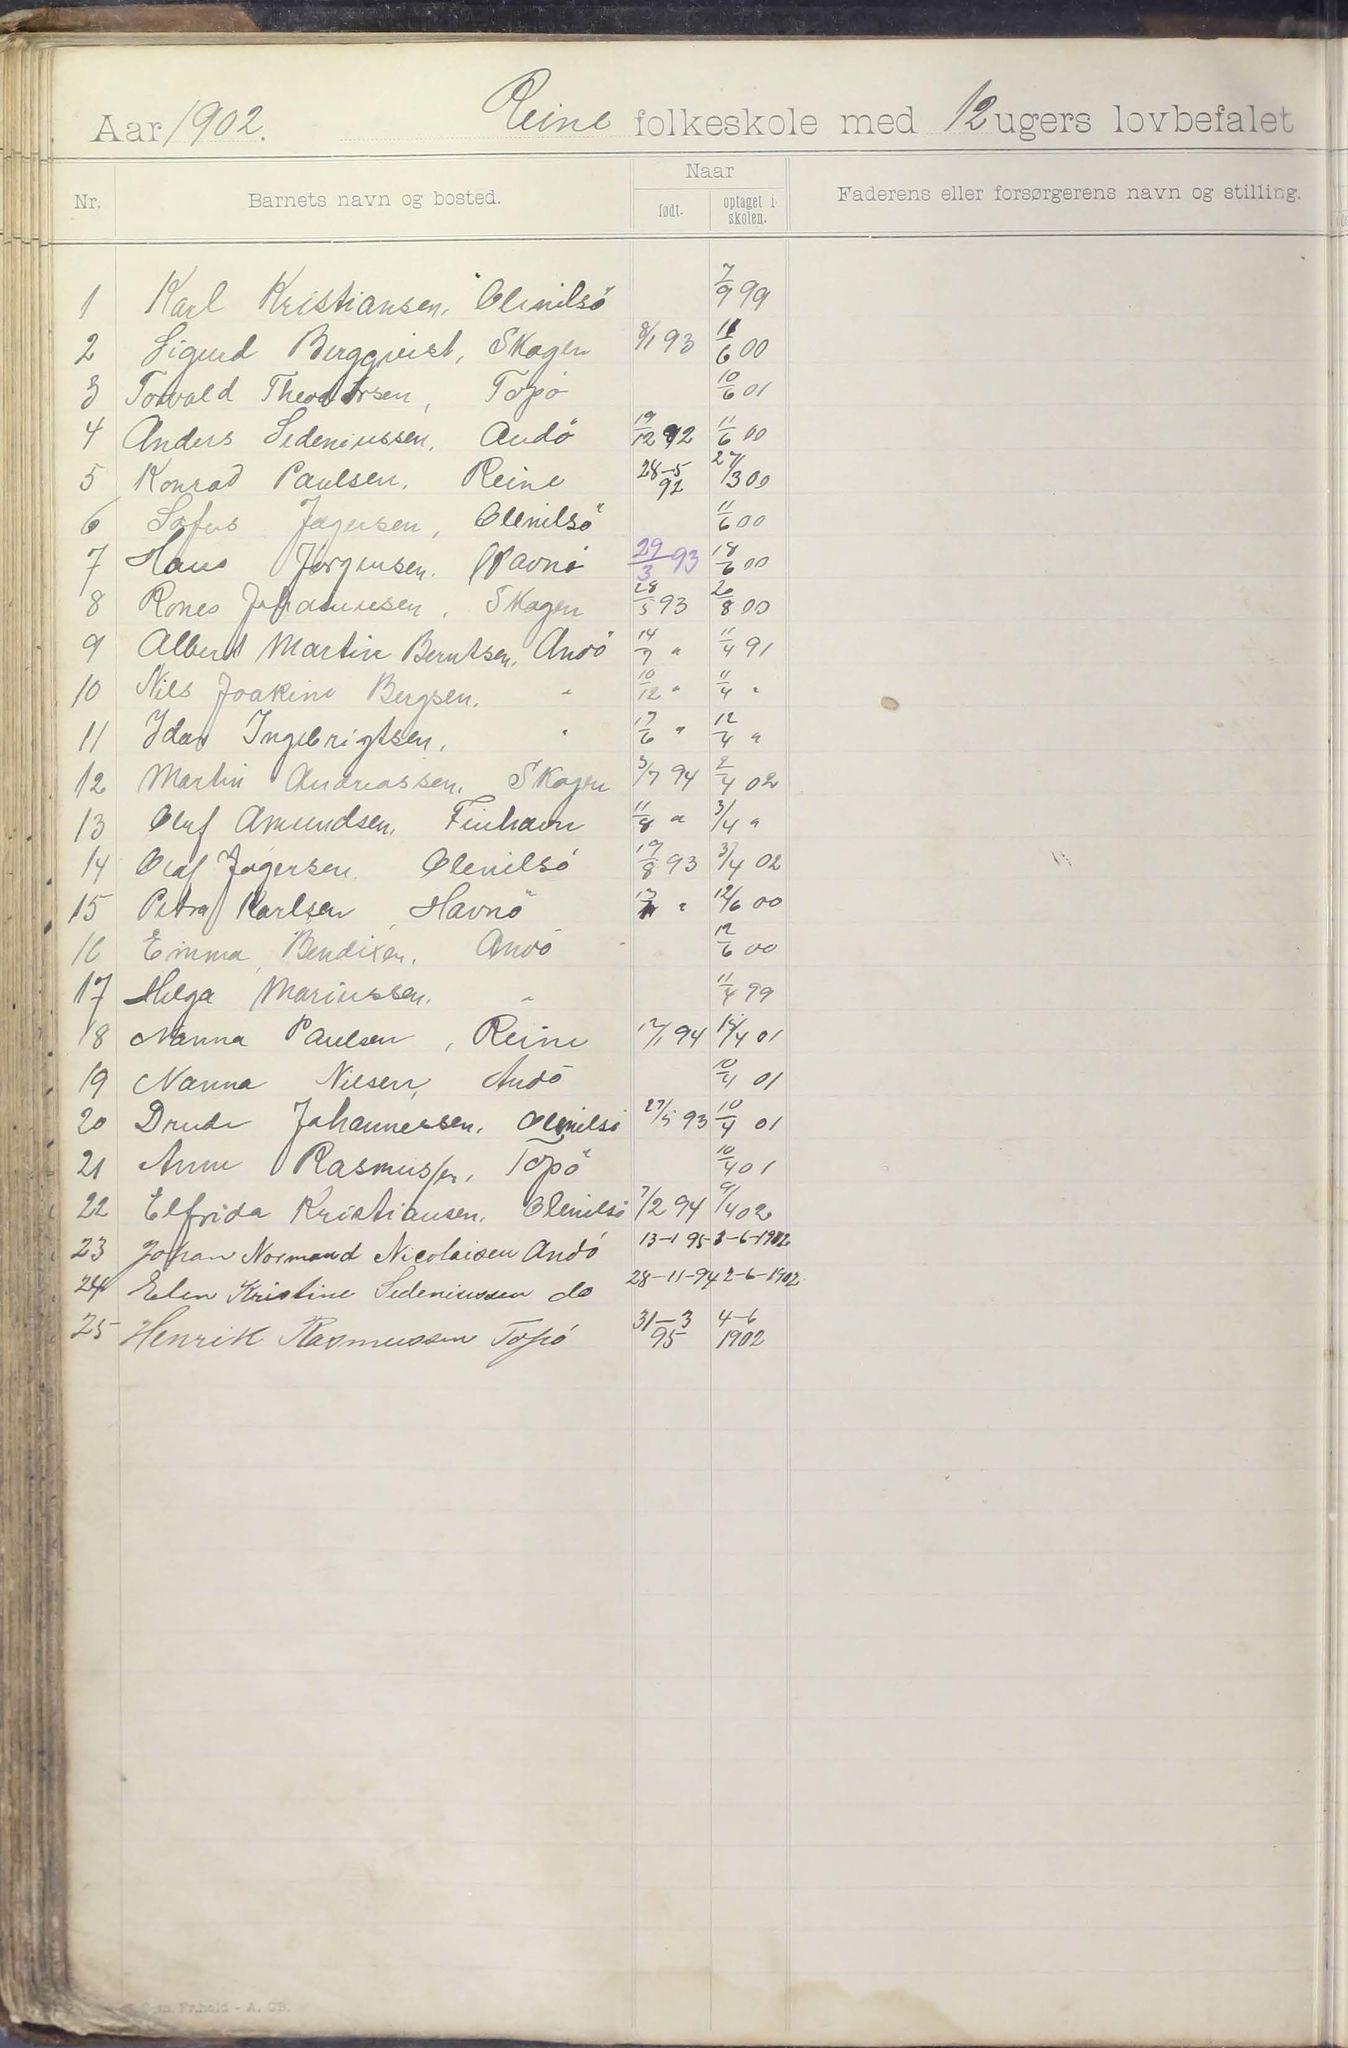 Aar 1902. Reine folkeskole med 12 ugers lovbefalet
Nr. Barnets navn og bosted. Naar Faderens eller forsørgerens navn og stilling.
født. optaget i skolen.
1 Karl Kristiansen, Olenilsö 7/9 99
2 Sigurd Bergqvist, Skagen 8/1 93 11/6 00
3 Torvald Theodorsen, Topö 10/6 01
4 Anders Sedeniussen, Andö 19/12 92 11/6 00
5 Konrad Paulsen, Reine 28-5 92 27/3 00
6 Sofus Jagersen, Olenilsö 11/6 00
7 Hans Jørgensen. Havnö 29/3 93 18/6 00
8 Johannesen, Skagen 28/5 93 20/8 00
9 Albert Martin Berntsen, Andö 14/7 " 11/4 91
10 Nils Joakim Bergsen. " 10/12 " 11/4 "
11 Idar Ingebrigtsen, " 17/6 " 12/4 "
12 Martin Andreassen, Skagen 3/7 94 2/4 02
13 Oluf Amundsen, Finhavn 11/8 " 3/4 "
14 Olaf Jagersen Olenilsö 19/8 93 3/4 02
15 Petra Karlsen, Havnö " 12/6 00
16 Emma Bendixen, Andö 12/6 00
17 Helga Mariussen. " 11/4 99
18 Nanna Paulsen, Reine 17/1 94 01
19 Nanna Nilsen, Andö 10/4 01
20 Drude Johannessen, Olenilsö 27/5 93 10/4 01
21 Anne Rasmussen, Topö 10/4 01
22 Elfrida Kristiansen, Olenilsö 7/2 94 9/4 02
23 Johan Normand Nicolaisen Andö 13-1 95 2-6-1902
24 Elen Kristine Sedeniussen do 28-11-94 2-6-1902
25 Henrik Rasmussen Topö 31-3 95 4-6 1902